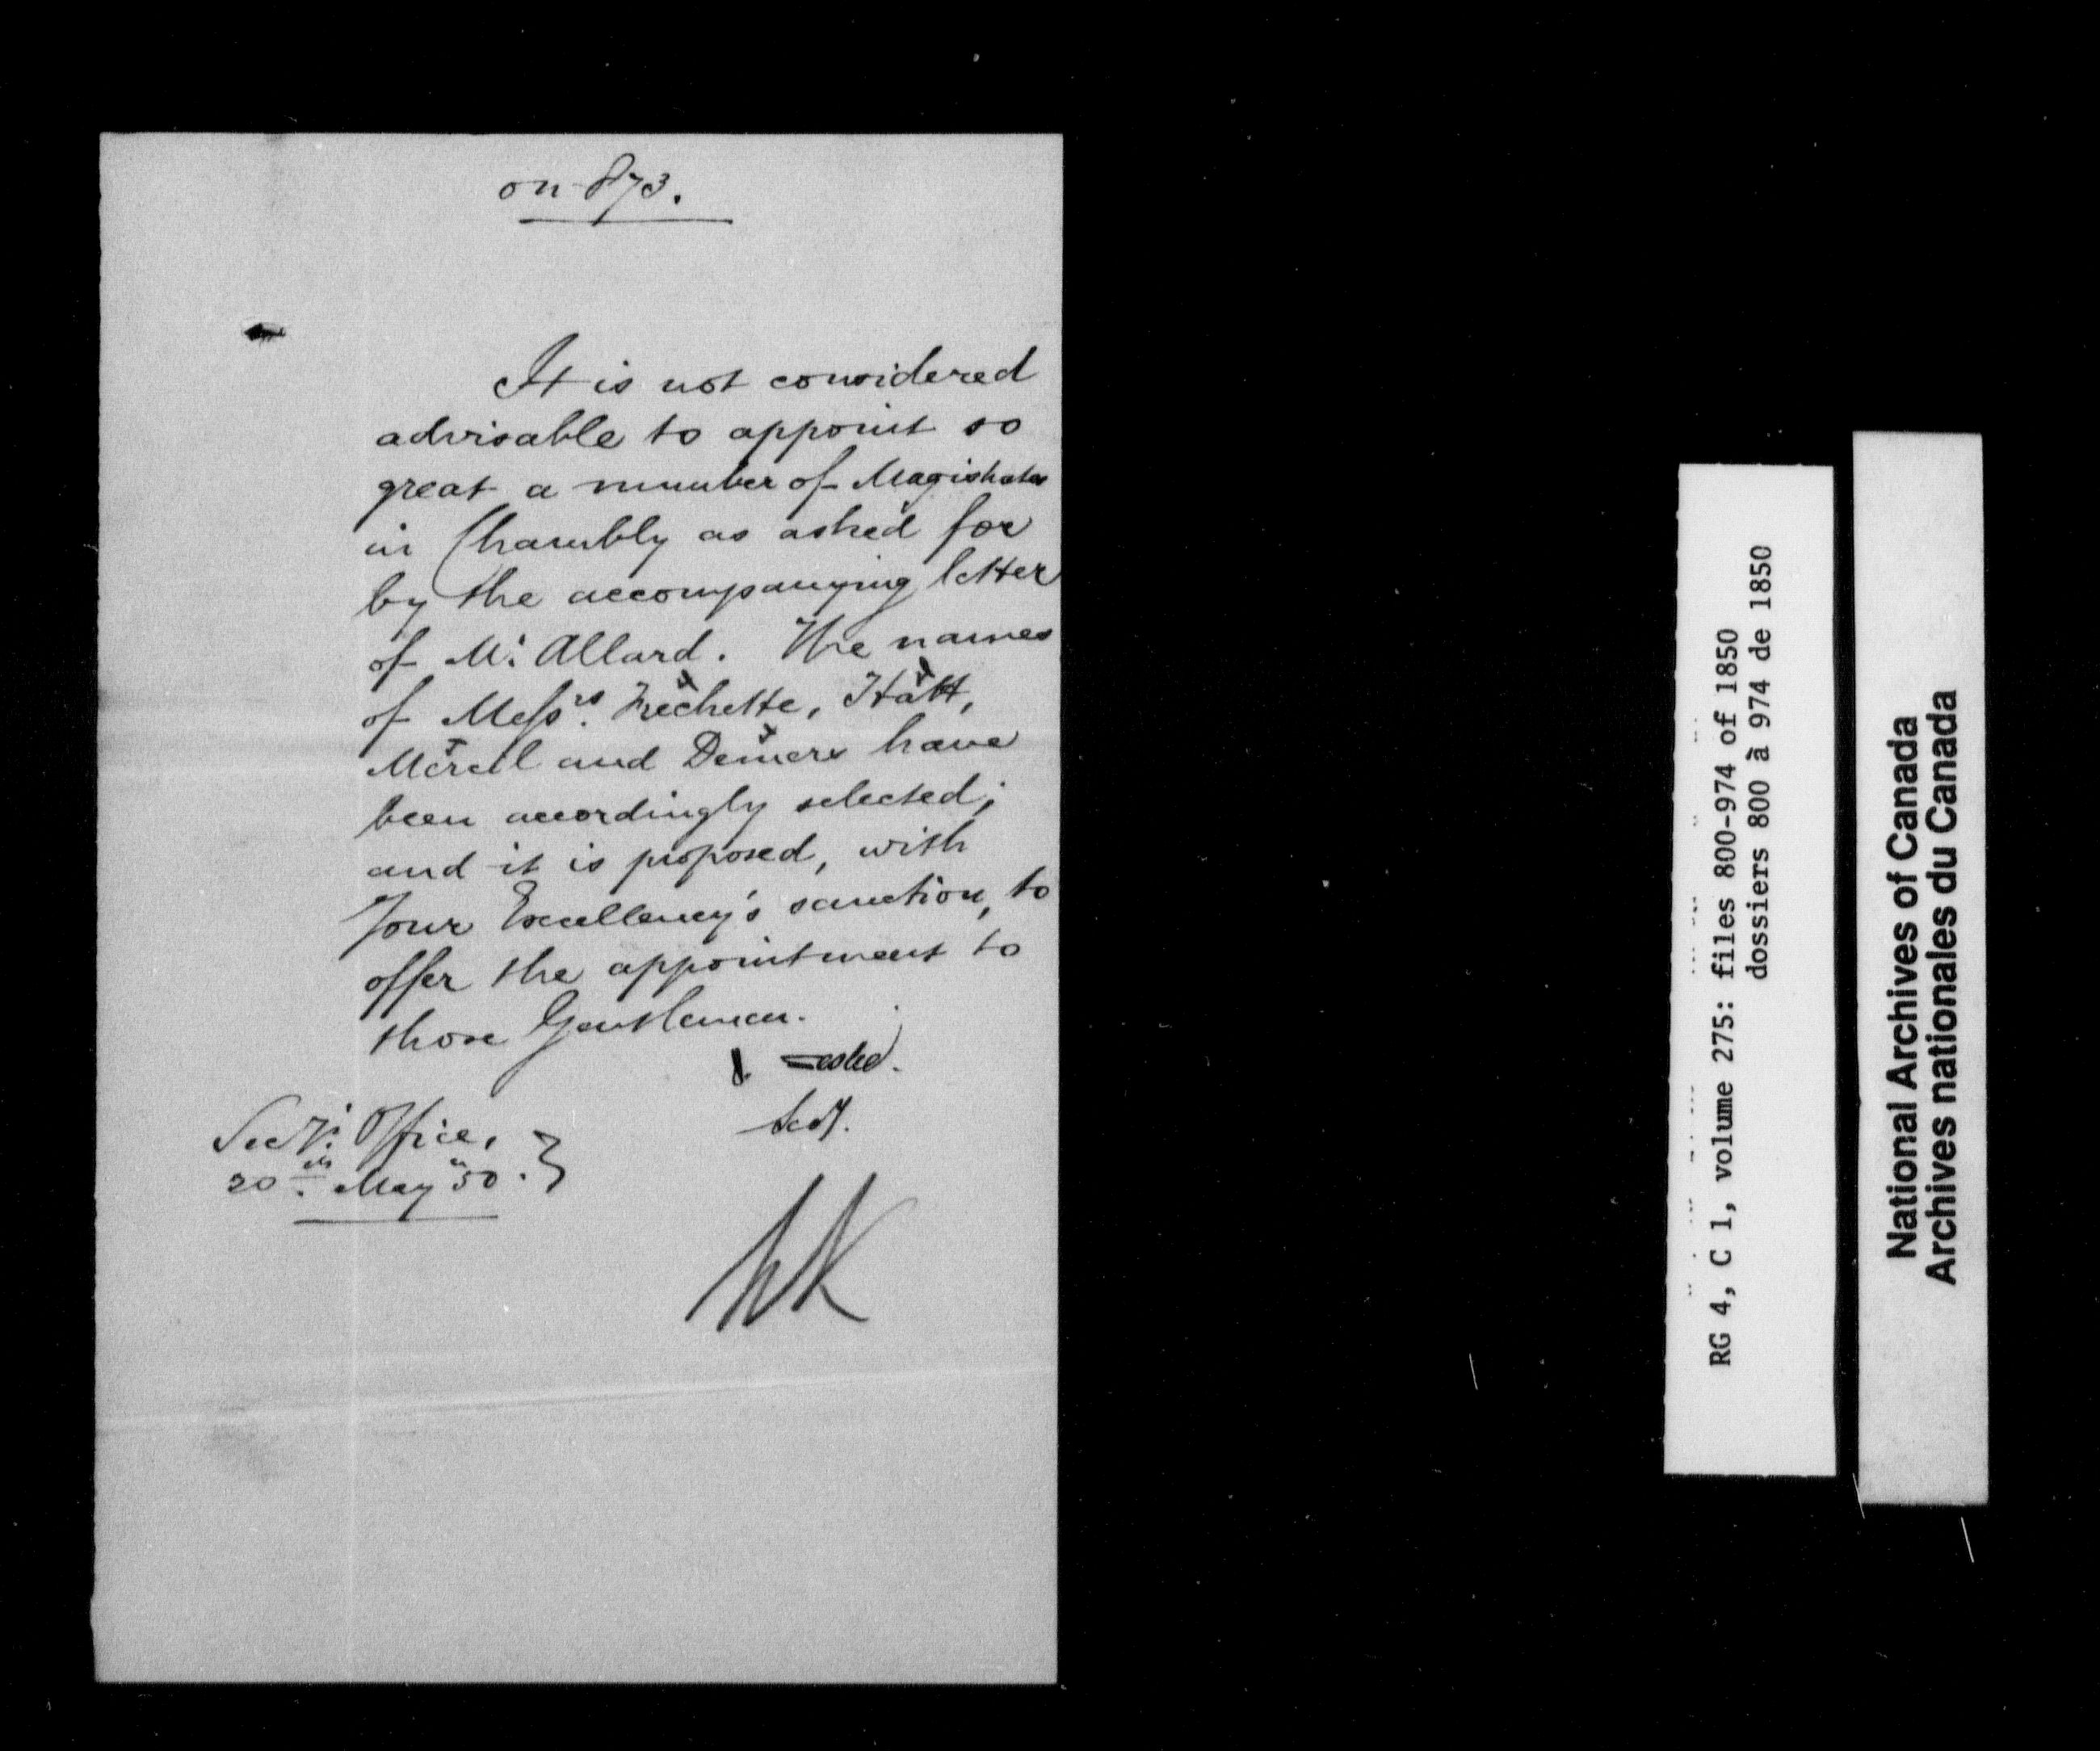 on 873.
It is not considered
advisable to appoint so
great a number of Magistrates
in Chambly as asked for
by the accompanying letter
of Mr. Allard. The names
of Messrs. Frechette, Hatt,
and Demers have
been accordingly selected;
and it is proposed, with
Your Excellency's sanction, to
offer the appointment to
those Gentlemen.
J. Leslie.
Secy.
Secy's. Office,
20th. May "50.
RG 4, C 1, volume 275: files 800-974 of 1850
dossiers 800 à 974 de 1850
National Archives of Canada
Archives nationales du Canada